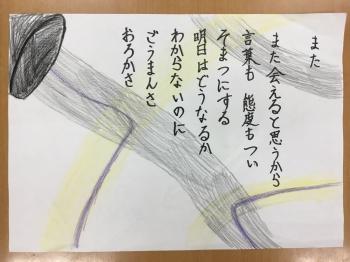 また
また会えると思うから
言葉も 態度もつい
そまつにする
明日はどうなるか
わからないのに
ごうまんさ
おろかさ